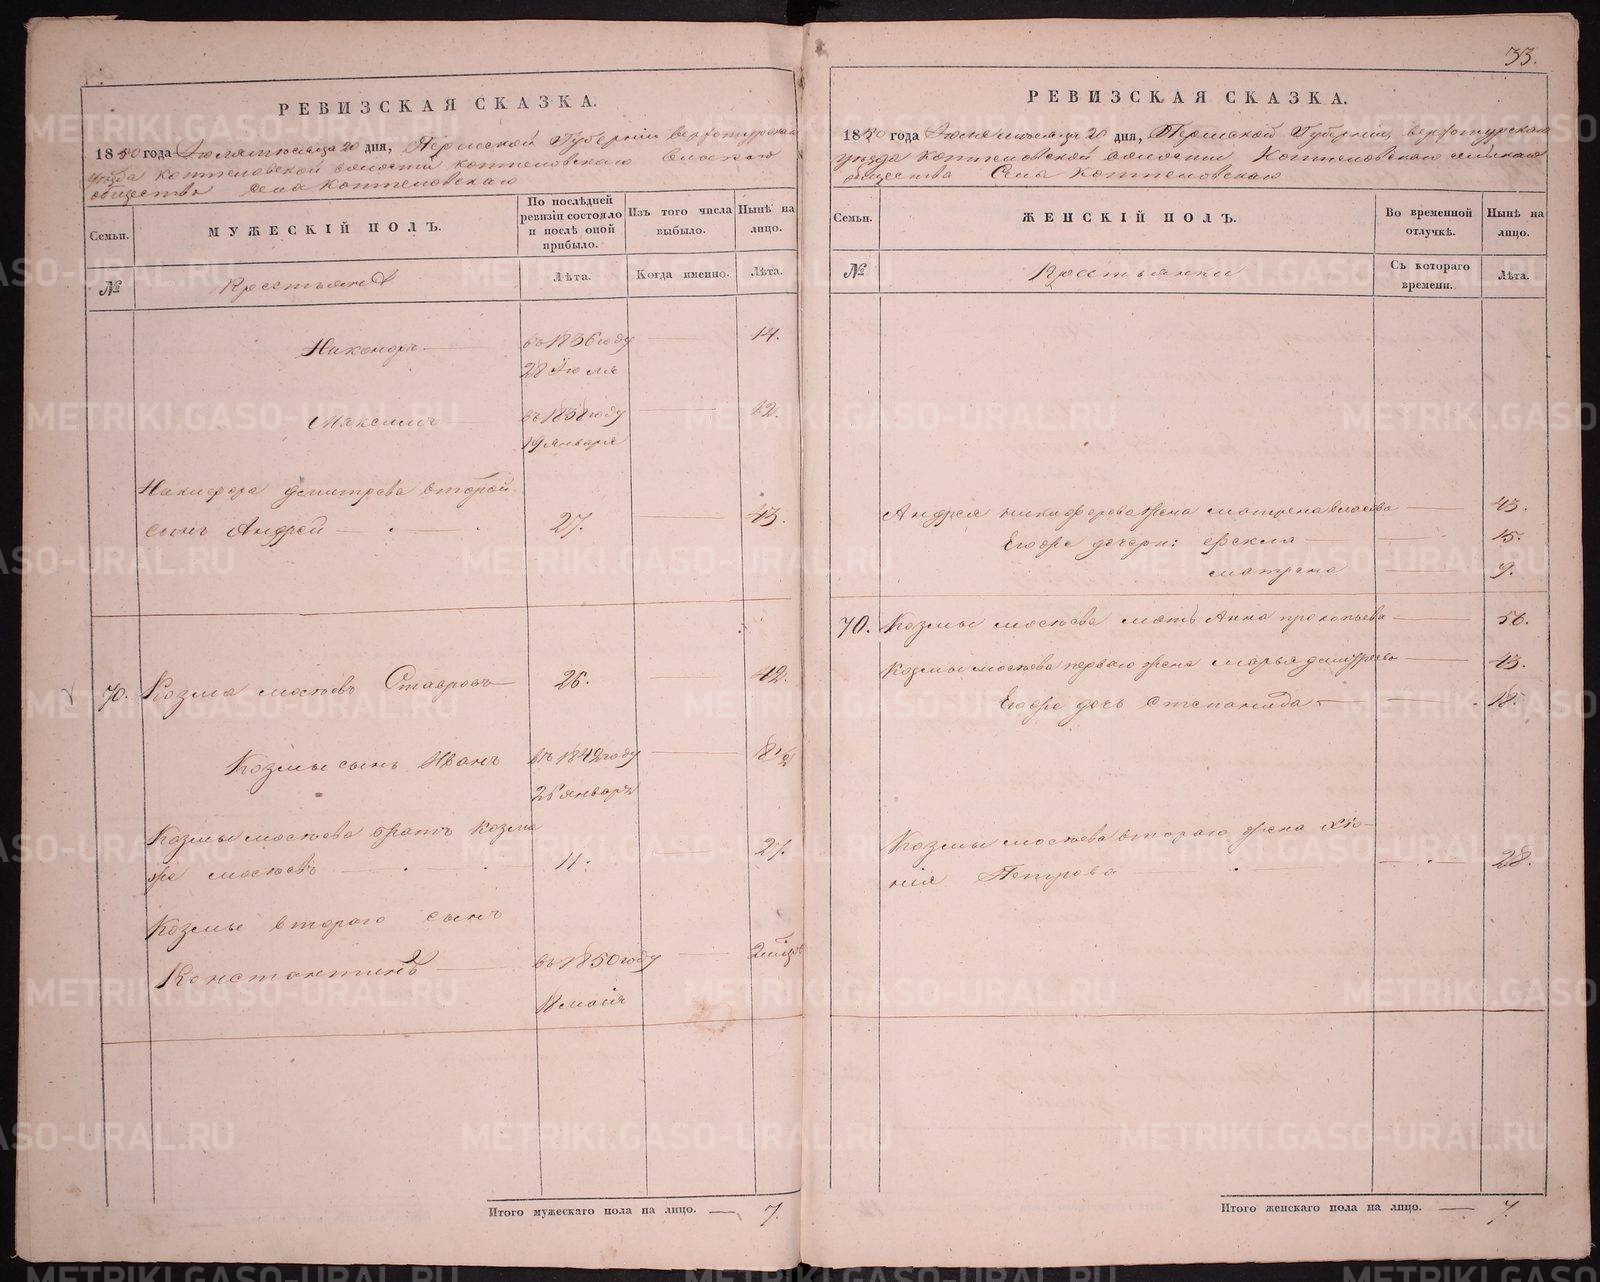 33.
РЕВИЗСКАЯ СКАЗКА.
1850 года Июля месяца 20 дня, Пермской Губернии верхотурскаго
уезда коптеловской волости коптеловскаго сельскаго
общества села коптеловскаго
Семьи.
МУЖЕСКІЙ ПОЛЪ.
По послѣдней ревизіи состояло и послѣ оной прибыло.
Изъ того числа выбыло.
Нынѣ на лицо.
№
Крестьяне
Лѣта.
Когда именно.
Лѣта.
Никоноръ въ 1836 году 14.
28 Июля
Максимъ въ 1838 году 12.
19 января
Никифора дмитрева второй
сынъ Андрей 27. 43.
70. Козма мосѣевъ 26. 42.
Козмы сынъ Иванъ въ 1842 году 8 1/2
26 января
Козмы мосѣева братъ Козма
же мосѣевъ 11. 27.
Козмы втораго сынъ
Константинъ въ 1850 году 2 мѣся
18 маія
Итого мужескаго пола на лицо. 7.
РЕВИЗСКАЯ СКАЗКА.
1850 года Июля месяца 20 дня, Пермской Губернии верхотурскаго
уезда коптеловской волости Коптеловскаго сельскаго
общества Села Коптеловскаго
Семьи.
ЖЕНСКІЙ ПОЛЪ.
Во временной отлучкѣ.
Нынѣ на лицо.
№
Крестьянки
Съ котораго времени.
Лѣта.
Андрея никифорова жена матрена власова 43.
Егоже дочери: фекла 15.
матрена 9.
70. Козмы мосѣева мать Анна прокопьева 56.
Козмы мосѣева перваго жена марья дмитрева 43.
Егоже дочь степанида 18.
Козмы мосѣева втораго жена Хіо-
нія Петрова 28.
Итого женскаго пола на лицо. 7.
METRIKI.GASO-URAL.RU